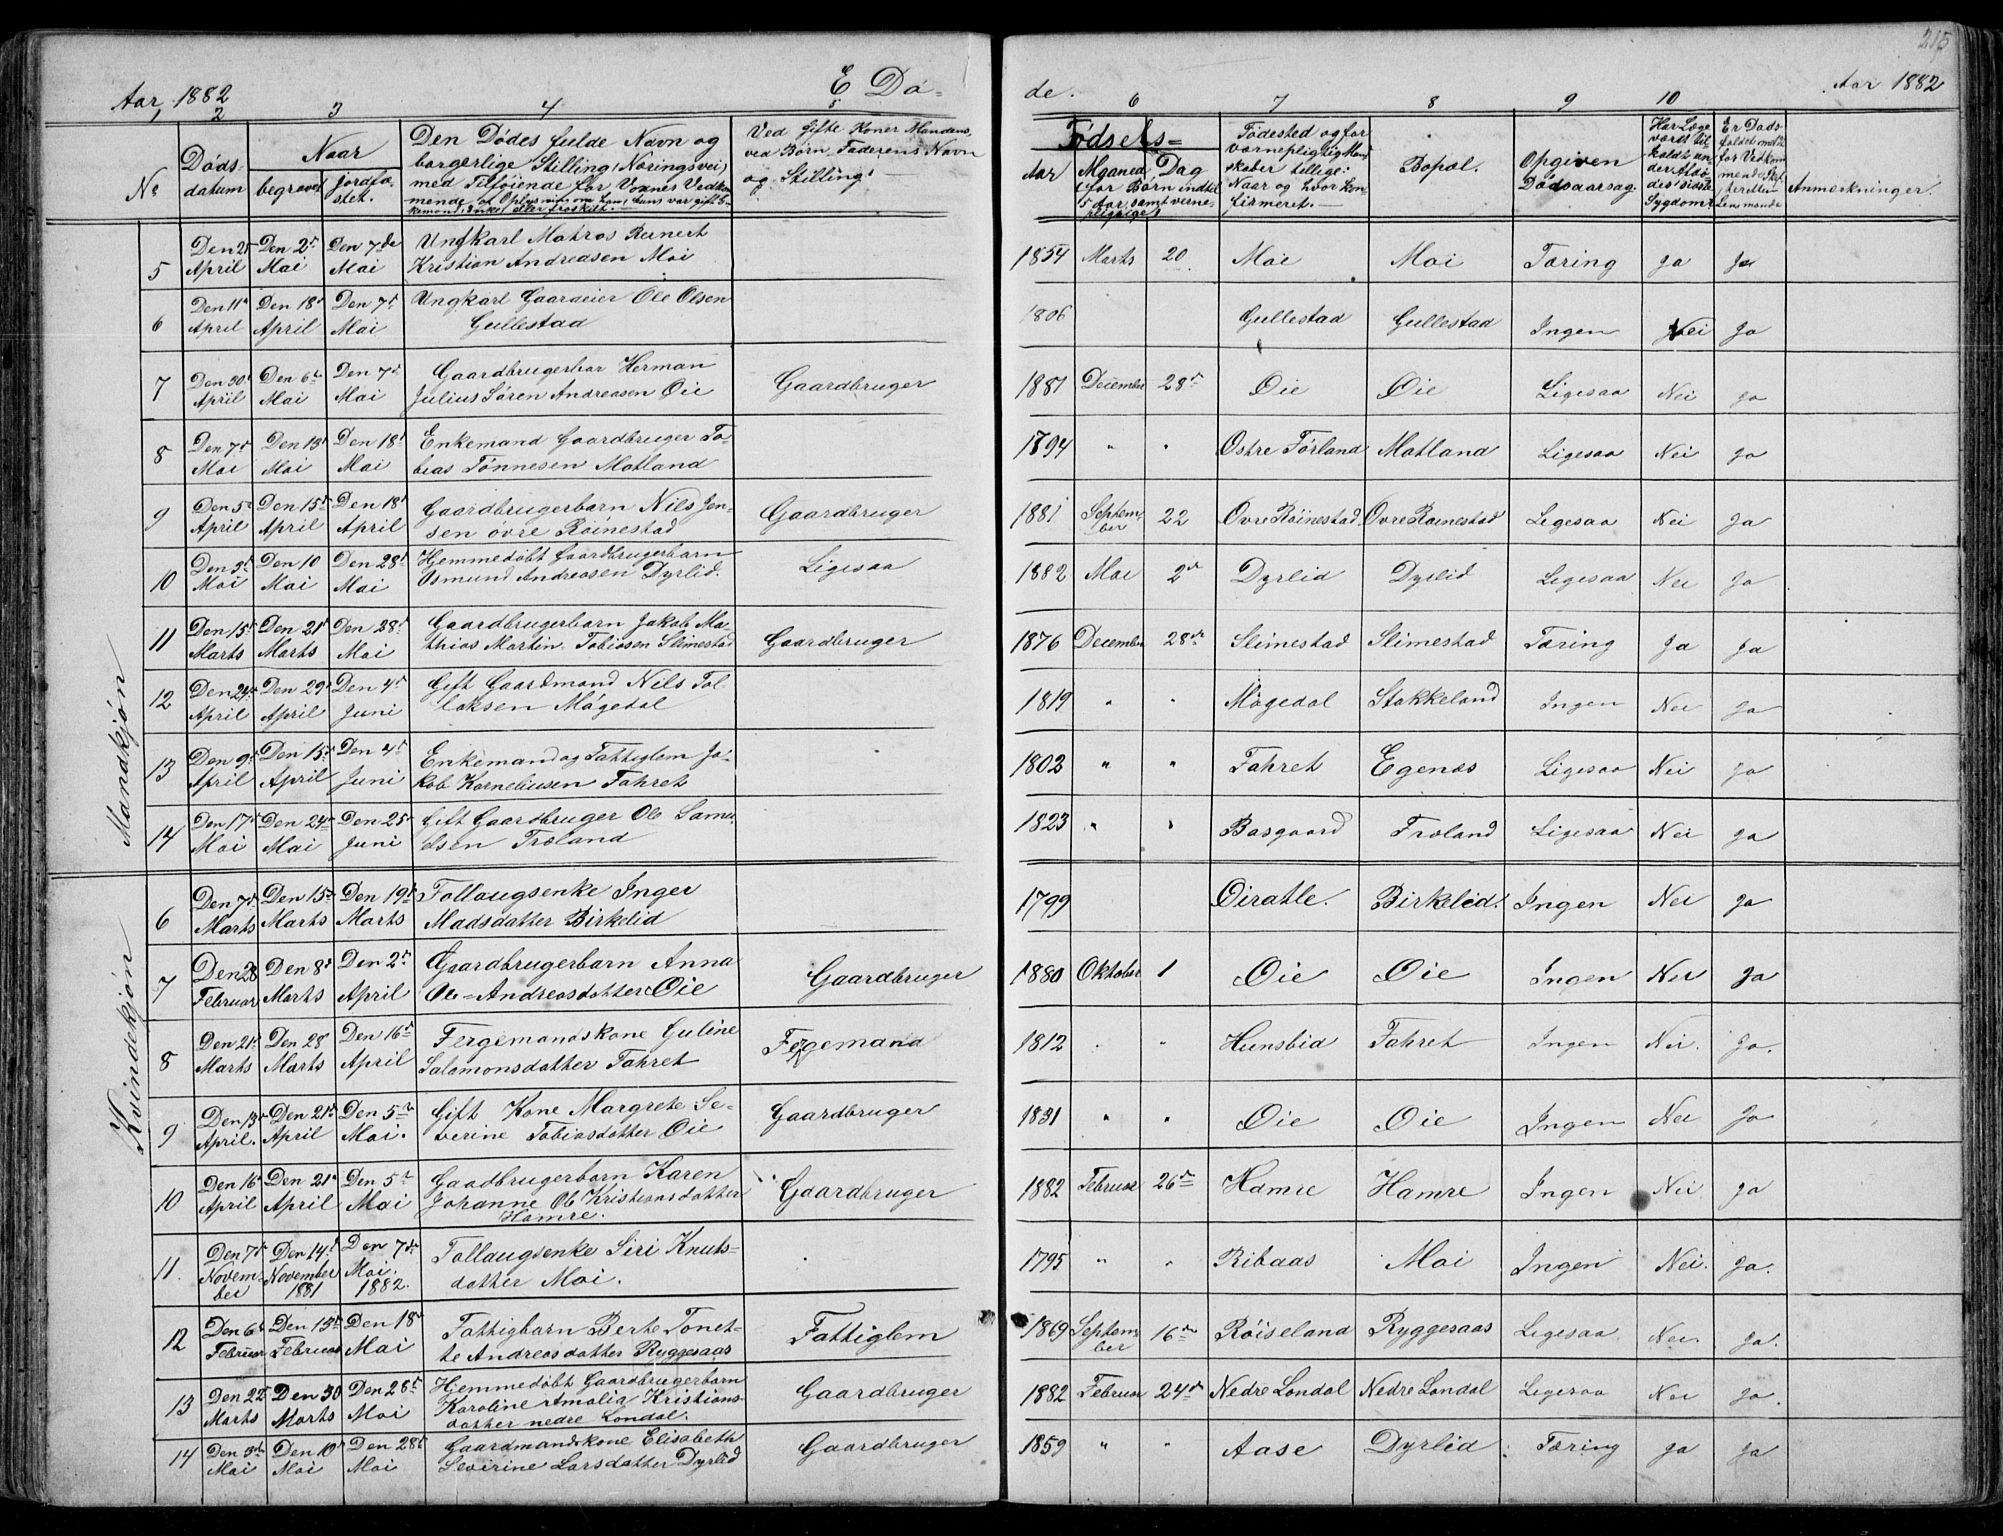 215
Aar 1882 E Dö= de. Aar 1882
1 2 3 4 5 6 7 8 9 10
No Dödsdatum Naar begravet Jordfæstet. Den Dödes fulde Navn og borgerlige Stilling (Næringsvei) med Tilføiende for Voxnes Vedkommende af Oplysning om han (hun) var gift Enkemand, Enke eller fraskilt. Ved Gifte Koner Mandens, ved Børn Faderens Navn og Stilling. Fødsels= Aar Maaned Dag (for Børn indtil 5 Aar samt vernepligtige) Fødested og for værnepligtig Mandskaber tillige: Naar og hvor konfirmeret. Bopæl. Opgiven Dødsaarsag. Har Læge været tilkaldt under Afdødes sidste Sygdom Er Dødsfaldet anmeldt for Vedkommende Skifteret eller Lensmand Anmerkninger.
Mandkjøn
5 Den 25 April Den 2t Mai Den 7de Mai Ungkarl Matros Reinert Kristian Andreasen Moi 1854 Marts 20 Moi Moi Tæring Ja Ja
6 Den 11t April Den 18t April Den 7t Mai Ungkarl Gaardeier Ole Olsen Gullestad 1806 Gullestad Gullestad Ingen Nei Ja
7 Den 30t April Den 6t Mai Den 7t Mai Gaardbrugerbar Herman Julius Søren Andreasen Øie Gaardbruger 1881 December 28t Øie Øie Ligesaa Nei Ja
8 Den 7t Mai Den 13t Mai Den 18t Mai Enkemand Gaardbruger Tobias Tønnesen Matland 1794 " " Østre Førland Matland Ligesaa Nei Ja
9 Den 5t April Den 15t April Den 18t April Gaardbrugerbarn Nils Jensen øvre Røinestad Gaardbruger 1881 September 22 Øvre Røinestad Øvre Røinestad Ligesaa Nei Ja
10 Den 3t Mai Den 10 Mai Den 28t Mai Hjemmedøbt Gaardbrugerbarn Osmund Andreasen Dyrlid. Ligesaa 1882 Mai 2t Dyrlid Dyrlid Ligesaa Nei Ja
11 Den 15t Marts Den 21t Marts Den 28t Mai Gaardbrugerbarn Jakob Mathias Martin Tobiasen Slimestad Gaardbruger 1876 December 28de Slimestad Slimestad Tæring Ja Ja
12 Den 24t April Den 29t April Den 4t Juni Gift Gaardmand Nils Tollaksen Møgedal 1819 " " Møgedal Stakkeland Ingen Nei Ja
13 Den 9t April Den 15t April Den 4t Juni Enkemand og Fattiglem Jakob Korneliusen Fahret 1802 " " Fahret Egenæs Ligesaa Nei Ja
14 Den 17t Mai Den 24t Mai Den 25 Juni Gift Gaardbruger Ole Samuelsen Træland 1823 " " Basgaard Træland Ligesaa Nei Ja
Kvindekjøn
6 Den 7t Marts Den 15t Marts Den 19t Marts Follaugsenke Inger Madsdatter Birkelid 1799 Birkelid. Ingen Nei Ja
7 Den 28 Februar Den 8t Marts Den 2t April Gaardbrugerbarn Anna Ol=Andreasdatter Øie Gaardbruger 1880 Oktober 1 Øie Øie Ingen Nei Ja
8 Den 21t Marts Den 28 Marts Den 16t April Fergemandskone Guline Salomonsdatter Fahret Fergemand 1812 " " Hunsbid Fahret Ingen Nei. Ja.
9 Den 13t April. Den 21t April Den 5te Mai. Gift Kone Margrete Severine Tobiasdatter Øie Gaardbruger 1831 " " Øie Øie Ingen Nei Ja
10 Den 16t April Den 21t April Den 5te Mai Gaadbrugerbarn Karen Johanne Ol Kristiansdatter Hamre. Gaardbruger 1882 Februar 26t Hamre Hamre Ingen Nei Ja
11. Den 7t November Den 14t November 1881 Den 7de Mai. 1882. Follaugsenke Siri Knutsdatter Moi. 1795 " " Ribaas Moi Ingen Nei. Ja.
12 Den 6t Februar Den 13t Februar Den 18t Mai Fattigbarn Berte Tonette Andreasdatter Ryggesaas Fattiglem 1869 September 16de Røiseland Ryggesaas Ligesaa Nei Ja.
13 Den 22t Marts Den 30 Marts Den 28t Mai Hjemmedøbt Gaardbrugerbarn Karoline Amalia Kristiansdatter nedre Londal. Gaardbruger 1882 Februar 24t Nedre Londal Nedre Londal Ligesaa Nei Ja.
14 Den 3de Mai Den 10t Mai Den 28t Mai Gaardmandskone Elisabeth Sevirine Larsdatter Dyrlid Gaardbruger 1859 " " Aase Dyrlid Tæring Ja Ja